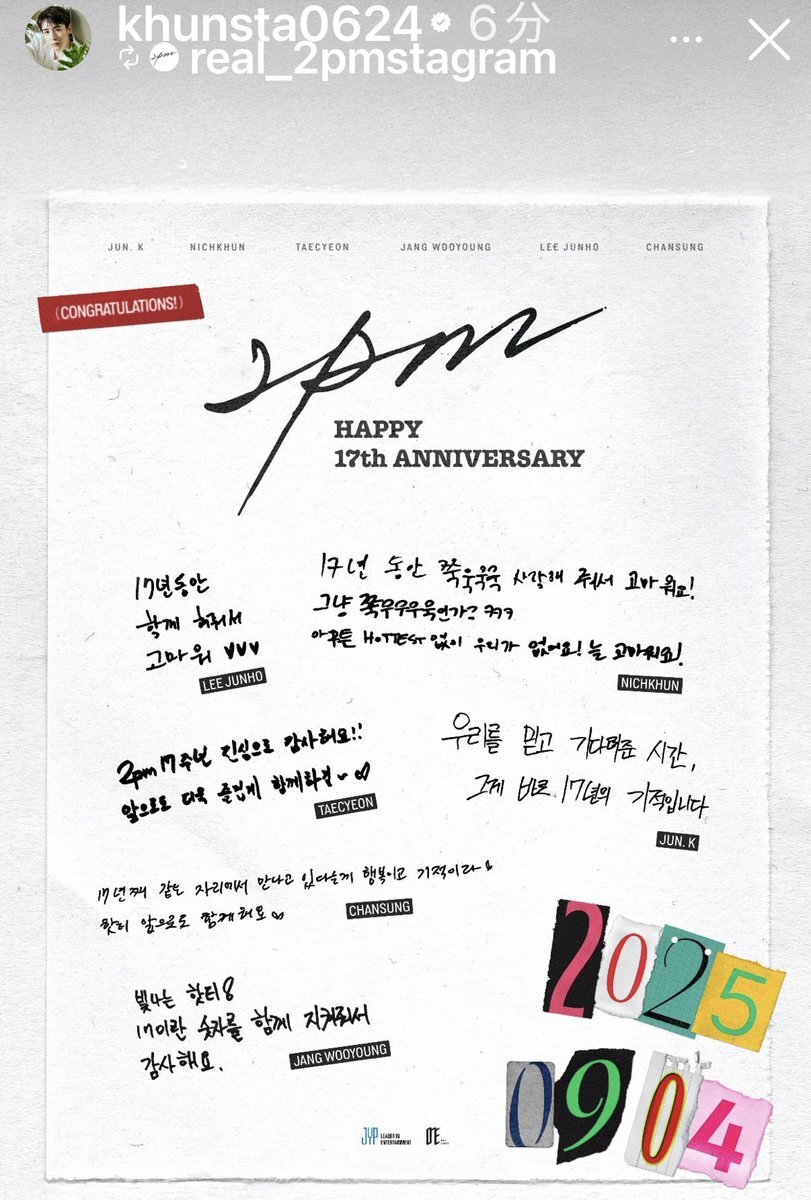 khunsta0624 6分
real_2pmstagram
JUN. K NICHKHUN TAECYEON JANG WOOYOUNG LEE JUNHO CHANSUNG
(CONGRATULATIONS!)
2pm
HAPPY
17th ANNIVERSARY
17년동안
함께 해줘서
고마워 ♥♥♥
LEE JUNHO
17년 동안 쭉욱욱욱 사랑해 줘서 고마워요!
그냥 쭉우우우욱인가? ㅋㅋㅋ
아무튼 HOTTEST 없이 우리가 없어요! 늘 고마워요!
NICHKHUN
2pm 17주년 진심으로 감사해요!!
앞으로도 더욱 즐겁게 함께하길~♡
TAECYEON
우리를 믿고 기다려준 시간,
그게 바로 17년의 기적입니다
JUN. K
17년째 같은 자리에서 만나고 있다는게 행복이고 기적이다♡
핫티 앞으로도 함께해요♡
CHANSUNG
빛나는 핫티
17이란 숫자를 함께 지켜줘서
감사해요.
JANG WOOYOUNG
2025
0904
JYP LEADER IN ENTERTAINMENT